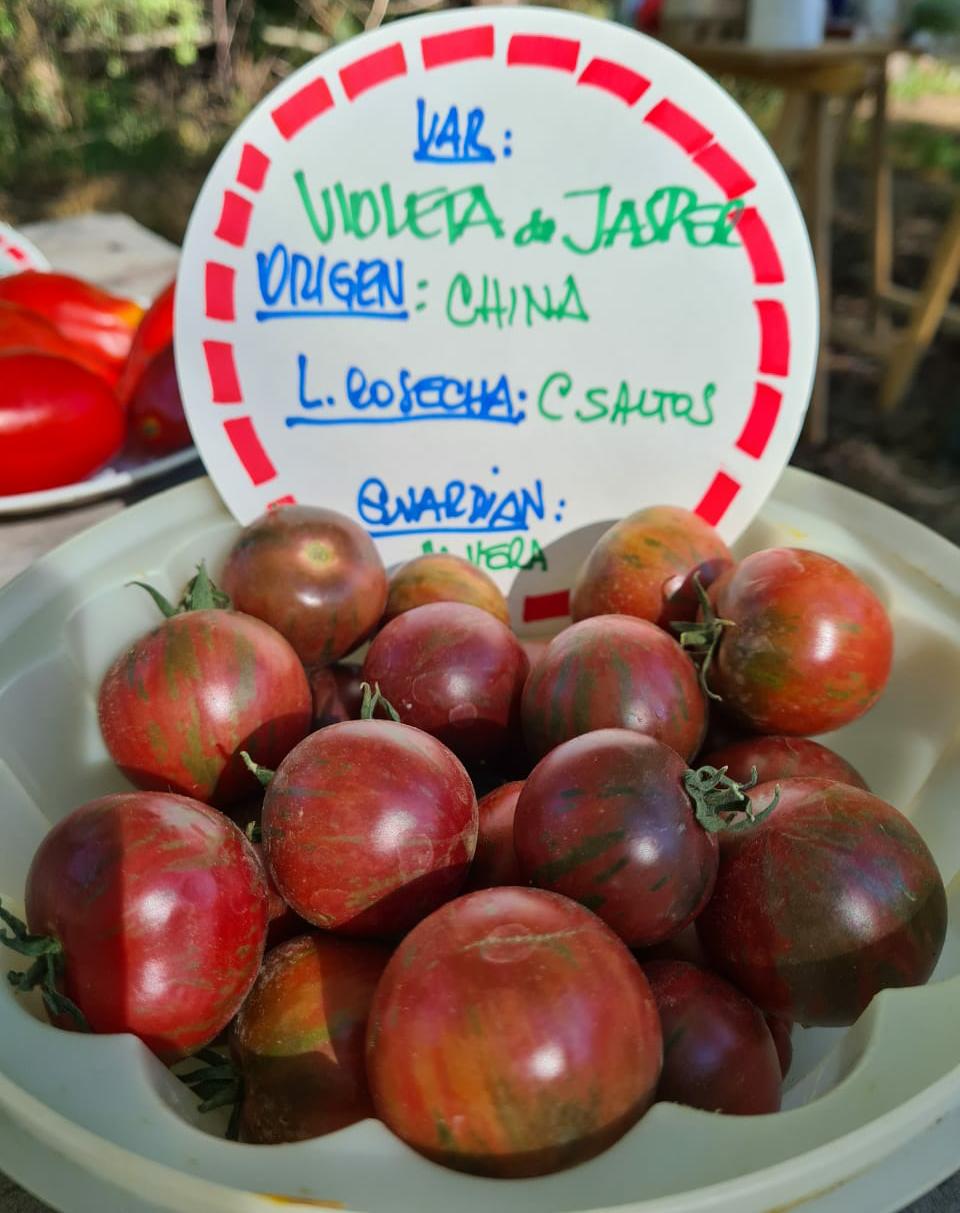 VAR:
VIOLETA de JASPER
ORIGEN: CHINA
L. COSECHA: C SALTOS
GUARDIAN: